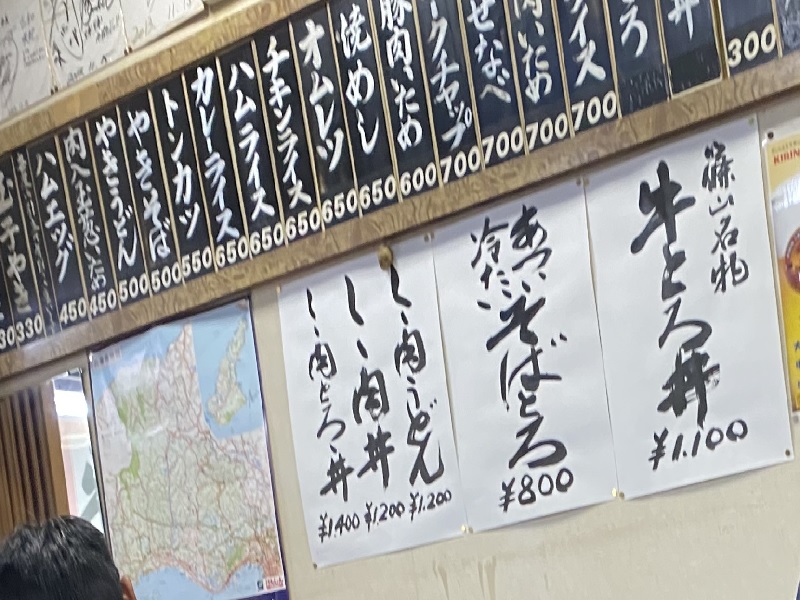 300
700
イス
700
内いため
700
せなべ
700
クチャップ
700
豚肉いため
600
焼めし
650
オムレツ
650
チキンライス
650
ハムライス
650
カレーライス
650
トンカツ
550
やきそば
500
やきうどん
500
450
ハムエッグ
450
玉子やき
330
篠山名物
牛とろ丼
¥1,100
あつい
冷たい
そばとろ
¥800
しし肉うどん
¥1,200
しし肉丼
¥1,200
しし肉とろろ丼
¥1,400
KIRIN